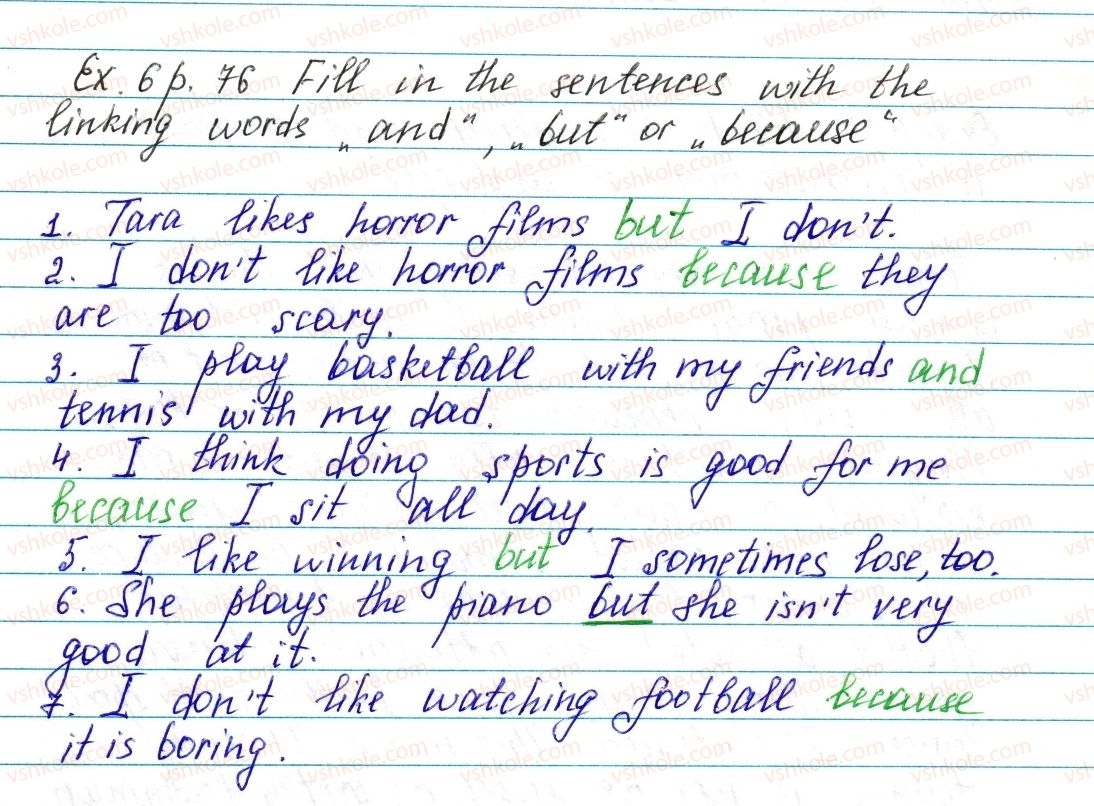 Ex. 6 p. 76 Fill in the sentences with the
linking words „and“, „but“ or „because“
1. Tara likes horror films but I don't.
2. I don't like horror films because they
are too scary.
3. I play basketball with my friends and
tennis with my dad.
4. I think doing sports is good for me
because I sit all day.
5. I like winning but I sometimes lose, too.
6. She plays the piano but she isn't very
good at it.
7. I don't like watching football because
it is boring.